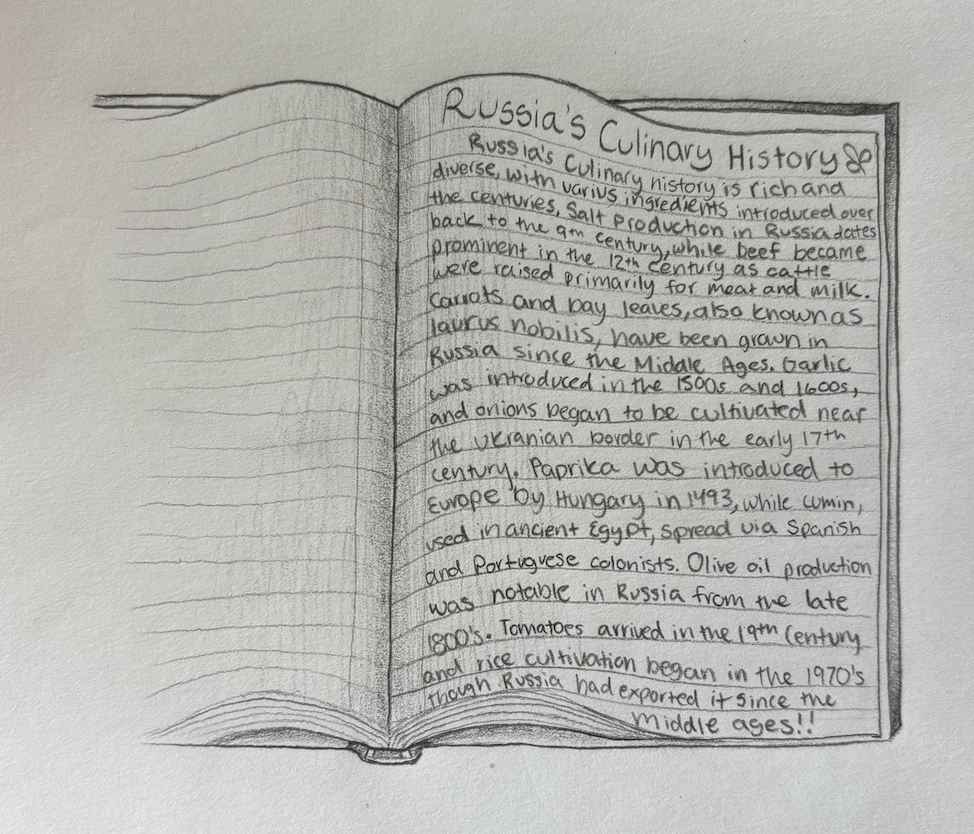 Russia's Culinary History &
Russia's Culinary history is rich and
diverse, with varius ingredients introduced over
the centuries, Salt production in Russia dates
back to the 9th century, while beef became
prominent in the 12th century as cattle
were raised primarily for meat and milk.
Carrots and bay leaves, also known as
laurus nobilis, have been grown in
Russia since the Middle Ages. Garlic
was introduced in the 1500s and 1600s,
and onions began to be cultivated near
the Ukranian border in the early 17th
century. Paprika was introduced to
Europe by Hungary in 1493, while cumin,
used in ancient Egypt, spread via Spanish
and Portuguese colonists. Olive oil production
was notable in Russia from the late
1800's. Tomatoes arrived in the 19th Century
and rice cultivation began in the 1970's
though Russia had exported it since the
Middle ages!!